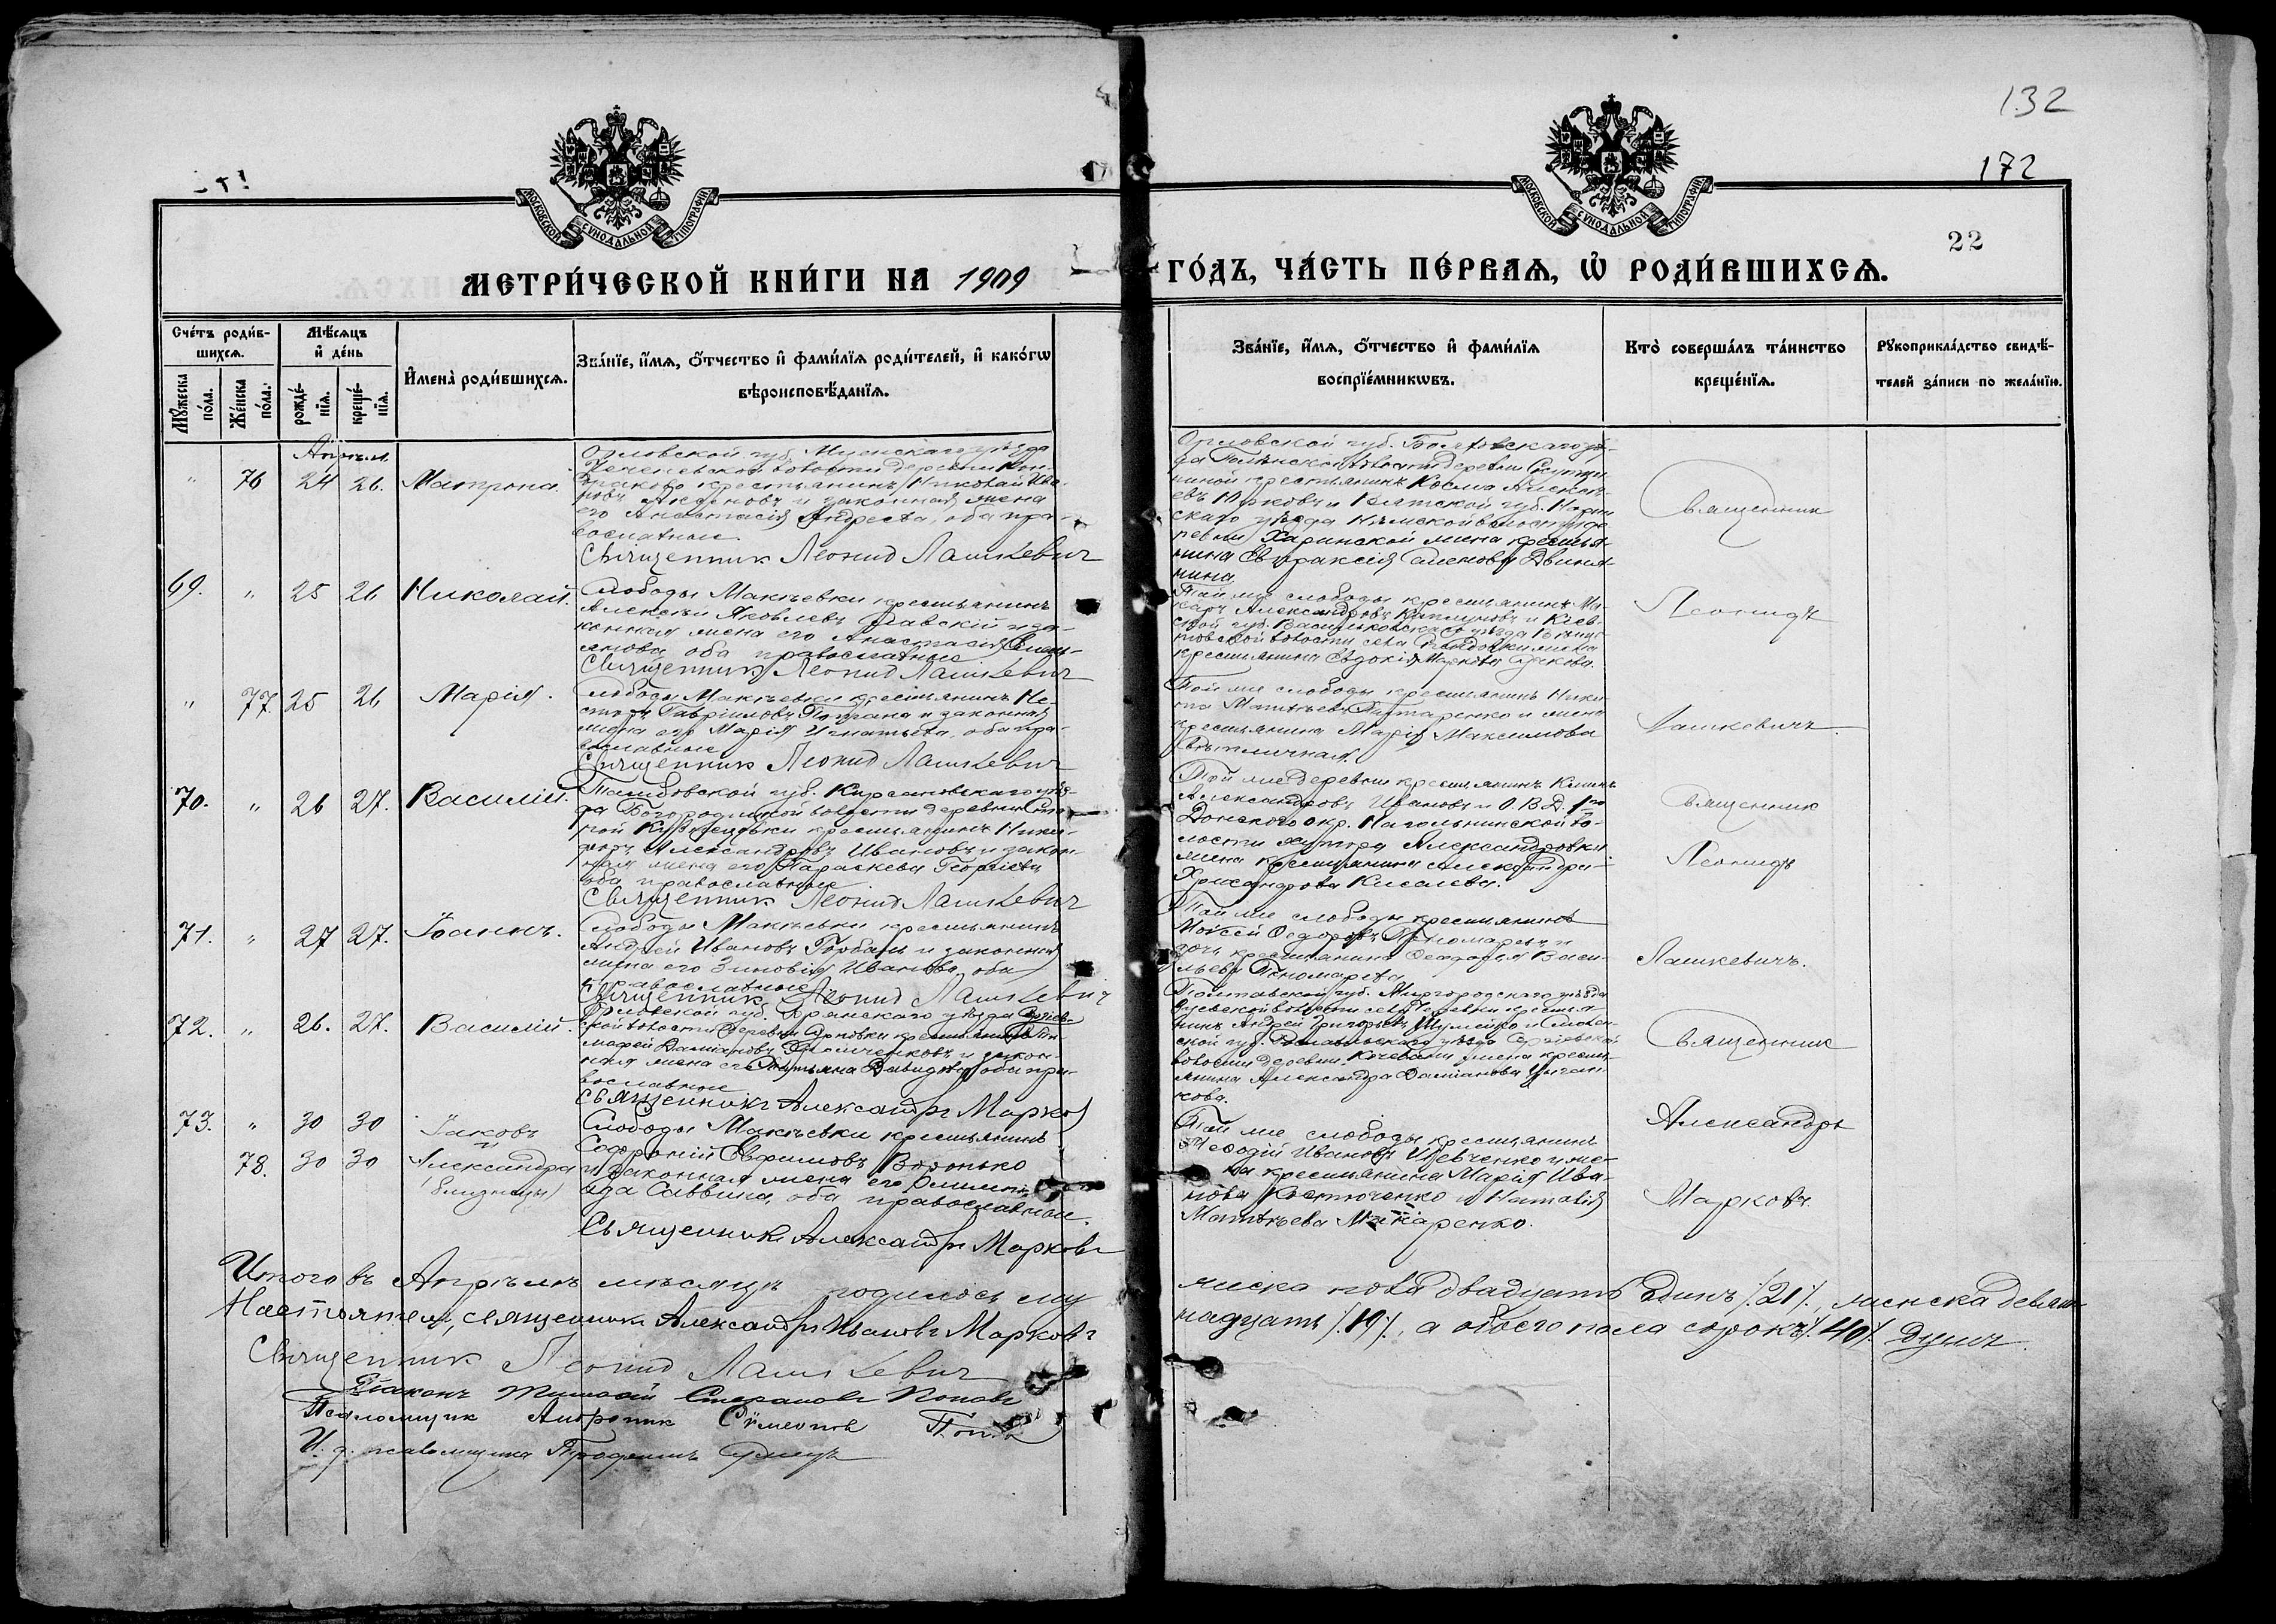 132
172
22
МОСКОВСКОЙ СѴНОДАЛЬНОЙ ТИПОГРАФІИ
МОСКОВСКОЙ СѴНОДАЛЬНОЙ ТИПОГРАФІИ
МЕТРИ́ЧЕСКОЙ КНИ́ГИ НА 1909 ГО́ДЪ, ЧА́СТЬ ПЕ́РВАѦ, Ѡ҆ РОДИ́ВШИХСѦ.
Сче́тъ роди́в-
шихсѧ.
Мꙋ́жеска по́ла.
Же́нска по́ла.
Мѣ́сѧцъ и҆ де́нь
рожде́-
нїѧ.
креще́-
нїѧ.
И҆мена̀ роди́вшихсѧ.
Зва́нїе, и҆́мѧ, ѻ҆́тчество и҆ фами́лїѧ роди́телей, и҆ како́гѡ
вѣроисповѣ́данїѧ.
Зва́нїе, и҆́мѧ, ѻ҆́тчество и҆ фами́лїѧ
воспрїе́мникѡвъ.
Кто̀ соверша́лъ та́инство
креще́нїѧ.
Рꙋкоприкла́дство свидѣ́-
телей за́писи по жела́нїю.
Апрѣль
" 76 24 26. Матрона.
Орловской губ. Мценскаго уѣзда
волости деревни Кон-
драково крестьянинъ Николай Ива-
новъ и законная жена
его Анастасія Андреева, оба пра-
вославные.
Священникъ Леонид Лашкевич
Орловской губ. Болховскаго уѣ-
да волости деревни
крестьянинъ Косма Алексѣ-
евъ Юрковъ и Вятской губ. Нолин
скаго уѣзда Нѣмской волости де-
ревни Харинской жена крестья-
нина Евпраксія Семенова Двиня-
нина.
Священникъ
69. " 25 26 Николай.
Слободы Макѣевки крестьянинъ
Алексѣй Яковлевъ и за-
конная жена его Анастасія
оба православные
Священникъ Леонид Лашкевич
Той же слободы крестьянинъ Ма-
каръ Александровъ и Кіев-
ской губ. Васильковскаго уѣзда
волости села жена
крестьянина Евдокія Маркова
Леонидъ
" 77. 25 26 Марія.
Слободы Макѣевки крестьянинъ Не-
сторъ Гавріиловъ и законная
жена его Марія Игнатьева, оба пра-
вославные
Священникъ Леонид Лашкевич
Той же слободы крестьянинъ Ники-
та Матвѣевъ и жена
крестьянина Марія Максимова
Лашкевичъ.
70. " 26 27. Василій.
Тамбовской губ. Кирсановскаго уѣз-
да Богородицкой волости деревни
Кузнецовки крестьянинъ Ники-
форъ Александровъ Ивановъ и закон-
ная жена его Параскева Георгіева
оба православные
Священникъ Леонид Лашкевич
Той же деревни крестьянинъ
Александровъ Ивановъ и О. В. Д. 1го
Донского окр. Нагольнинской во-
лости хутора Александровки
жена крестьянина Александра
Киселева.
Священник
Леонидъ
71. " 27 27. Іоаннъ.
Слободы Макѣевки крестьянинъ
Андрей Ивановъ Горбань и законная
жена его Зиновія Иванова, оба
православные
Священникъ Леонид Лашкевич
Той же слободы крестьянинъ
Моѵсей Ѳедоровъ Пономаревъ и
дочь крестьянина Ѳеодосія Васи-
льева Пономарева
Лашкевичъ.
72. " 26. 27. Василій.
Орловской губ. Брянскаго уѣзда
ской волости деревни крестьянинъ
Даміановъ и закон-
ная жена его Татьяна Давидова, оба пра-
вославные
Священникъ Александръ Марков
Полтавской губ. Миргородскаго уѣзда
волости села крестья
нинъ Андрей Григорьевъ Шумейко и Смолен-
ской губ. Рославльскаго уѣзда
волости деревни жена кресть-
янина Александра Даміанова Цыган-
кова.
Священник
73. " 30 30 Іаковъ
и
78. 30 30 Александра
(близнецы)
Слободы Макѣевки крестьянинъ
Софроній Евфимовъ Воронько
и законная жена его
Саввина, оба православные.
Священникъ Александръ Марковъ
Той же слободы крестьянинъ
Меѳодій Ивановъ Шевченко и же-
на крестьянина Марія Ива-
нова Костюченко и Наталія
Матвѣева
Александръ
Марковъ.
Итого въ Апрѣлѣ мѣсяцѣ родилось му
жеска пола двадцать одинъ /21/, женска девят-
надцать /19/, а обоего пола сорокъ /40/ душъ.
Настоятель, священникъ Александръ Ивановъ Марковъ
Священник Леонид Лашкевич
Діаконъ Тимоѳей Стефановъ Поповъ
Псаломщик Андроник Симеонов Попов
И. д. псаломщика